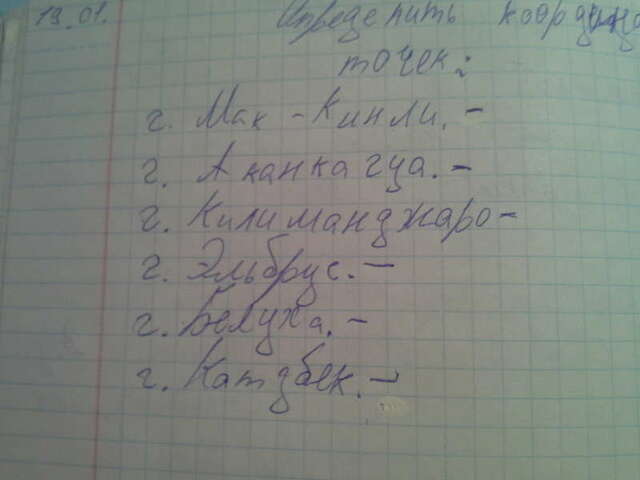 19.01. Определить координа
точек:
г. Мак-Кинли. -
г. Аканкагуа. -
г. Килиманджаро -
г. Эльбрус. -
г. Белуха. -
г. Катдбек. -